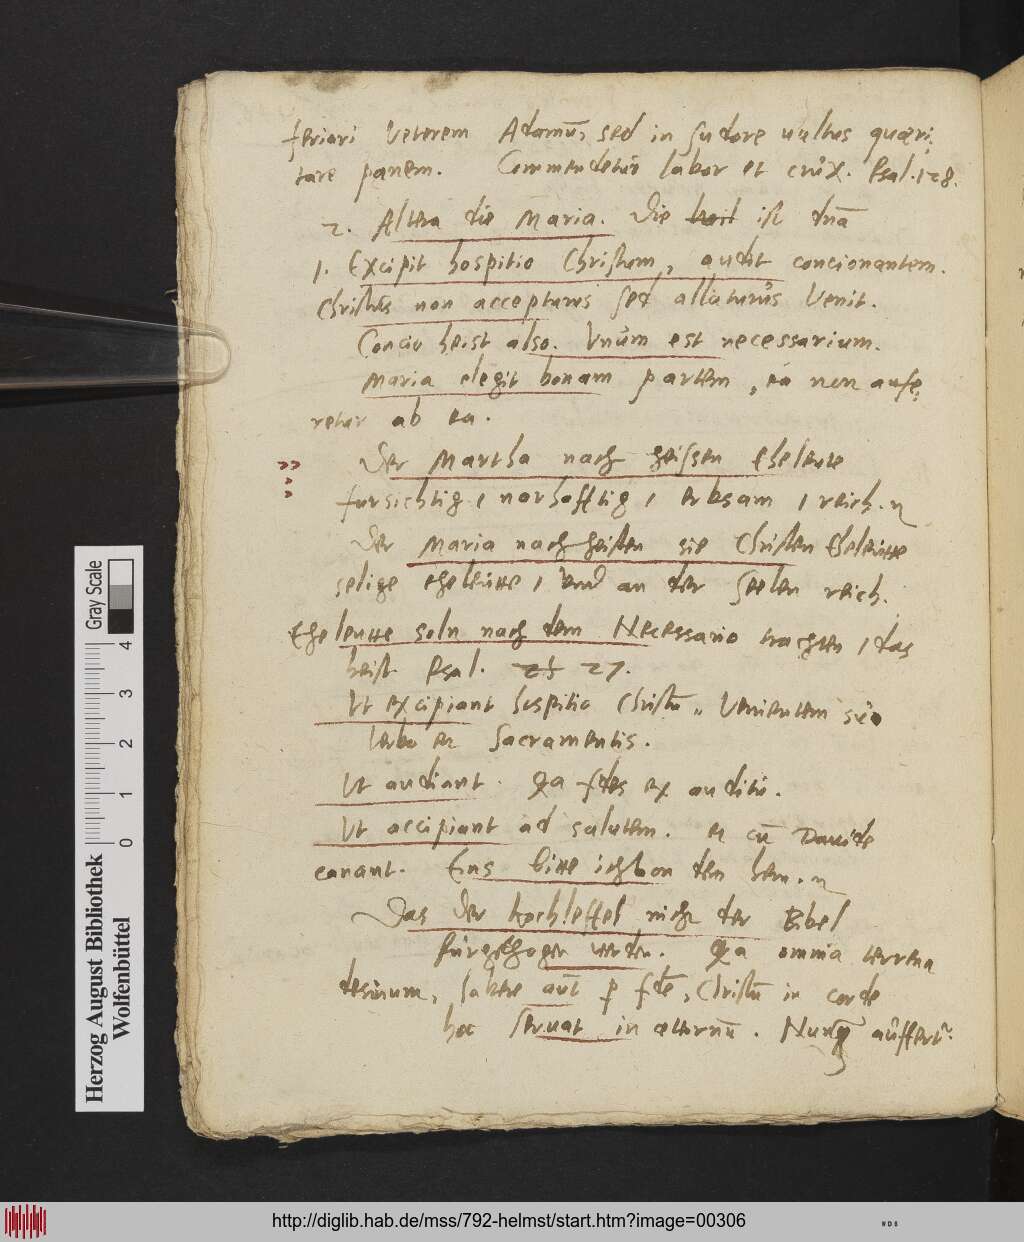 feriari veterem Adamū, sed in sudore vultus quæri,
tare panem. Commendetur labor et crux. Psal. 128.
2. Altera die Maria. Die ist
1. Excipit hospitio Christum, audit concionantem.
Christus non accepturus sed allaturus venit.
Concio heist also. Vnum est necessarium.
Maria elegit bonam partem, ea non aufe,
retur ab ea.
Der Martha nach heissen Eheleute
fursichtig, narhafftig, erbsam, reich.
Der Maria nach heissen sie Christen Eheleutte
selige eheleutte, vnd an der Seelen reich.
Eheleutte soln nach dem Necessario trachten, das
heist Psal. 27.
Vt excipiant hospitio Christū, venientem suo
verbo et Sacramentis.
Vt audiant. Qa fides ex auditu.
Vt accipiant ad salutem. et cū Dauide
canant. Eins bitte ich von den hern.
Das der kochleffel nicht der Bibel
fürgezogen werden. Qa omnia terrena
desinum, aūt p fidē, Christū in corde
hoc seruat in æternū. Nunq auffertr.
Herzog August Bibliothek
Wolfenbüttel
Gray Scale
0 1 2 3 4
http://diglib.hab.de/mss/792-helmst/start.htm?image=00306